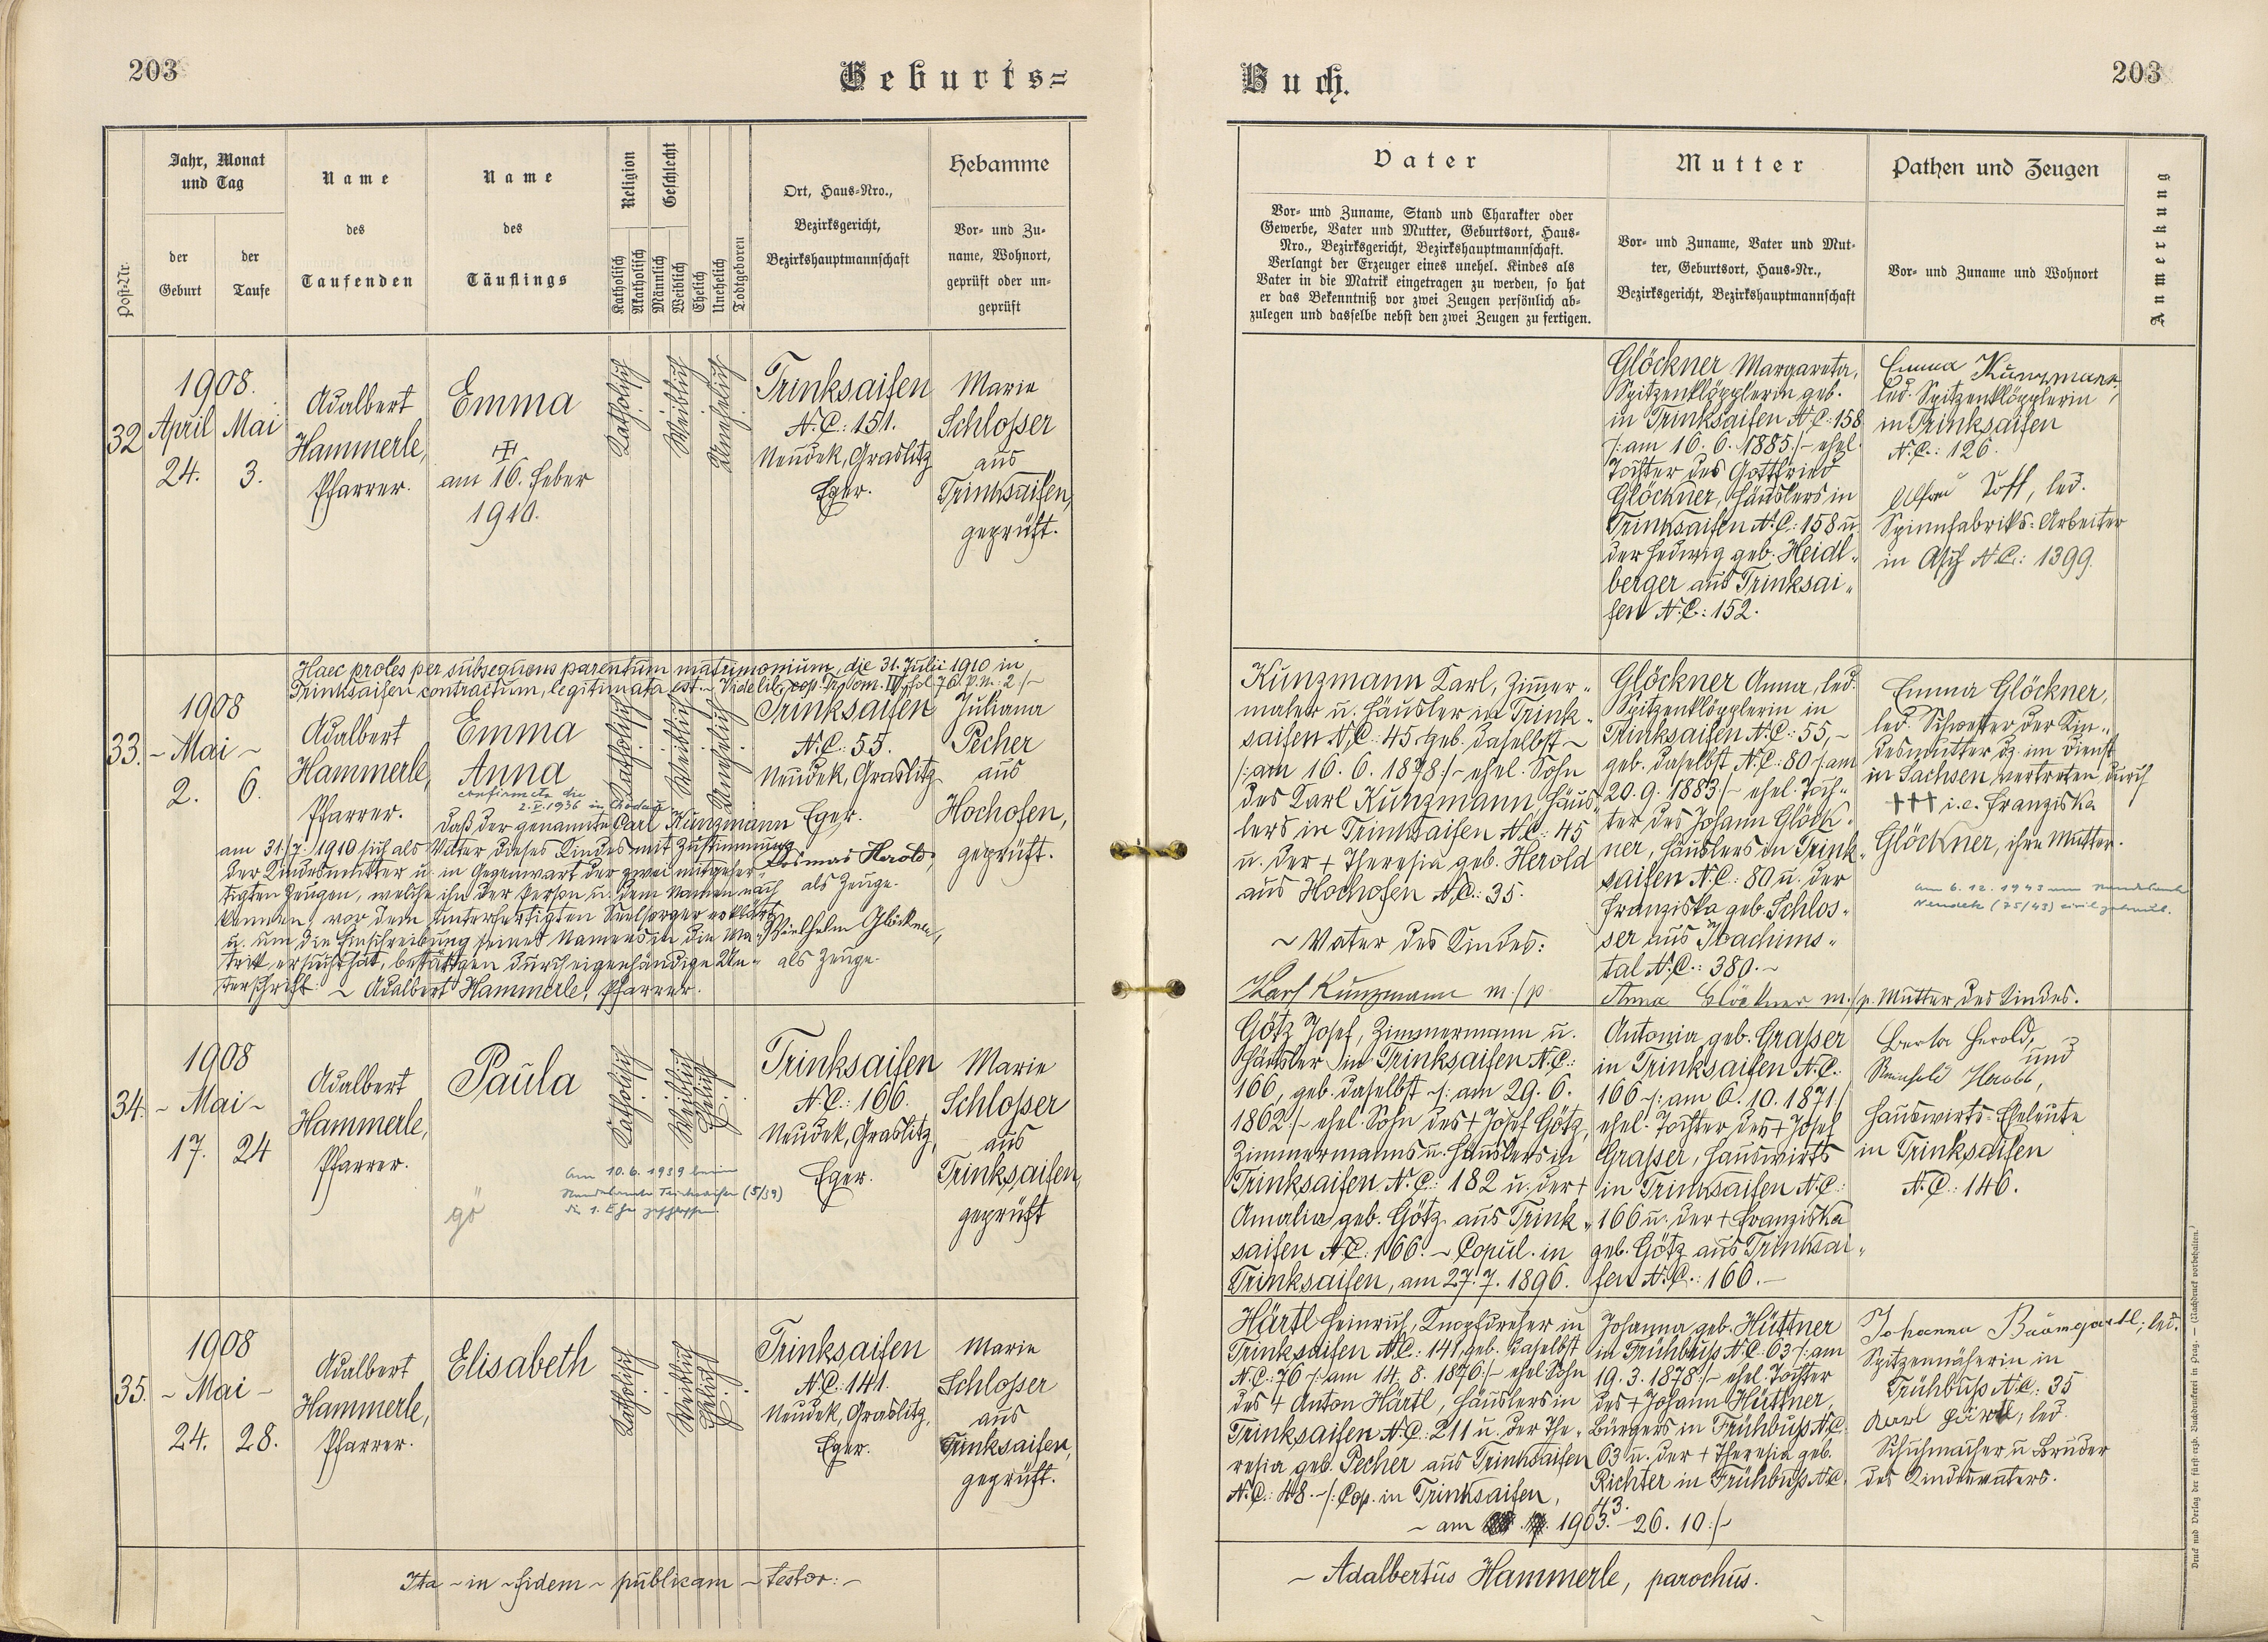 203
Geburts=
Post-Nr.
Jahr, Monat
und Tag
der
Geburt
der
Taufe
Name
des
Taufenden
Name
des
Täuflings
Religion
Katholisch
Akatholisch
Geschlecht
Männlich
Weiblich
Ehelich
Unehelich
Todtgeboren
Ort, Haus-Nro.,
Bezirksgericht,
Bezirkshauptmannschaft
Hebamme
Vor- und Zu-
name, Wohnort,
geprüft oder un-
geprüft
32
1908.
April Mai
24. 3.
Adalbert
Hammerle,
Pfarrer.
Emma
am 16. Feber
1910.
Katholisch
Weiblich
Unehelich
Trinksaifen
N.C: 151.
Neudek, Graslitz
Eger.
Marie
Schlosser
aus
Trinksaifen,
geprüft.
Haec proles per subsequens parentum matrimonium, die 31. Julii 1910 in
Trinksaifen contractum, legitimata est. ~ Vide lib. cop. Tr. Tom. IV, fol 76. p.n. 2 /~
33.
1908
~ Mai ~
2. 6.
Adalbert
Hammerle,
Pfarrer.
Emma
Anna
confirmata die
2.V.1936 in Chodau
Katholisch
Weiblich
Unehelich
Trinksaifen
N.C: 55.
Neudek, Graslitz
Eger.
Juliana
Pecher
aus
Hochofen,
geprüft.
Daß der genannte Carl Kunzmann
am 31./7. 1910 sich als Vater dieses Kindes mit Zustimmung
der Kindesmutter u. in Gegenwart der zwei mitgefer-
tigten Zeugen, welche ihn der Person u. dem Namen nach
kennen, vor dem unterfertigten Seelsorger erklärt
u. um die Einschreibung seines Namens in die Ma-
trik ersucht hat, bestättgen durch eigenhändige Un-
terschrift: ~ Adalbert Hammerle, Pfarrer.
Cosmas Herold,
als Zeuge.
Wilhelm Glöckner,
als Zeuge.
34.
1908
~ Mai ~
17. 24
Adalbert
Hammerle,
Pfarrer.
Paula
gö
Am 10.6.1939 beim
Standesamte Trinksaifen (5/39)
die 1. Ehe geschlossen.
Katholisch
Weiblich
Ehelich
Trinksaifen
N.C: 166.
Neudek, Graslitz,
Eger.
Marie
Schlosser
aus
Trinksaifen,
geprüft
35.
1908
~ Mai ~
24. 28.
Adalbert
Hammerle,
Pfarrer.
Elisabeth
Katholisch
Weiblich
Ehelich
Trinksaifen
N.C: 141.
Neudek, Graslitz,
Eger.
Marie
Schlosser
aus
Trinksaifen,
geprüft.
Ita ~ in ~ fidem ~ publicam ~ testor: ~
Buch.
203
Vater
Vor- und Zuname, Stand und Charakter oder
Gewerbe, Vater und Mutter, Geburtsort, Haus-
Nro., Bezirksgericht, Bezirkshauptmannschaft.
Verlangt der Erzeuger eines unehel. Kindes als
Vater in die Matrik eingetragen zu werden, so hat
er das Bekenntniß vor zwei Zeugen persönlich ab-
zulegen und dasselbe nebst den zwei Zeugen zu fertigen.
Mutter
Vor- und Zuname, Vater und Mut-
ter, Geburtsort, Haus-Nr.,
Bezirksgericht, Bezirkshauptmannschaft
Pathen und Zeugen
Vor- und Zuname und Wohnort
Anmerkung
Glöckner Margareta,
Spitzenklöpplerin geb.
in Trinksaifen N.C: 158
/: am 16. 6. 1885 /~ ehel.
Tochter des Gottfried
Glöckner, Häuslers in
Trinksaifen N.C: 158 u.
der Hedwig geb. Heidl-
berger aus Trinksai-
fen N.C: 152.
Emma Kunzmann,
led. Spitzenklöpplerin
in Trinksaifen
N.C.: 126.
Alfred Poff, led.
Spinnfabriks-Arbeiter
in Asch N.C.: 1399.
Kunzmann Karl, Zimmer-
maler u. Häusler in Trink-
saifen N.C: 45. geb. daselbst ~
/: am 16. 6. 1878 :/~ ehel. Sohn
des Karl Kunzmann, Häus-
lers in Trinksaifen N.C.: 45
u. der + Theresia geb. Herold
aus Hochofen N.C.: 35.
~ Vater des Kindes:
Karl Kunzmann m./p
Glöckner Anna, led.
Spitzenklöpplerin in
Trinksaifen N.C.: 55, ~
geb. daselbst N.C: 80 /: am
20. 9. 1883 /~ ehel. Toch-
ter des Johann Glöck-
ner, Häuslers in Trink-
saifen N.C.: 80 u. der
Franziska geb. Schlos-
ser aus Joachims-
tal N.C.: 380. ~
Anna Glöckner m./p. Mutter des Kindes.
Emma Glöckner,
led. Schwester der Kin-
desmutter dz. im Dienst
in Sachsen, vertreten durch
+++ i.e. Franziska
Glöckner, ihre Mutter.
Am 6.12.1943 am Standesamte
Neudek (75/43) zivil getraut.
Götz Josef, Zimmermann u.
Häusler in Trinksaifen N.C.:
166, geb. daselbst /: am 29. 6.
1862 :/~ ehel. Sohn des + Josef Götz,
Zimmermanns u. Häuslers in
Trinksaifen N.C.: 182 u. der +
Amalia geb. Götz aus Trink-
saifen N.C: 166. ~ Copul. in
Trinksaifen, am 27. 7. 1896.
Antonia geb. Grasser
in Trinksaifen N.C.:
166 /: am 6. 10. 1871 /
ehel. Tochter des + Josef
Grasser, Hauswirts
in Trinksaifen N.C.:
166 u. der + Franziska
geb. Götz aus Trinksai-
fen N.C.: 166. ~
Berta Herold,
und
Reinhold Herold,
Hauswirts-Eheleute
in Trinksaifen
N.C.: 146.
Härtl Heinrich, Knopfdreher in
Trinksaifen N.C.: 141, geb. daselbst
N.C.: 76 /: am 14. 8. 1876 :/~ ehel. Sohn
des + Anton Härtl, Häuslers in
Trinksaifen N.C.: 211 u. der The-
resia geb. Pecher aus Trinksaifen
N.C.: 48. ~ /: Cop. in Trinksaifen,
~ am 1903. ~ 26. 10 :/~
Johanna geb. Hüttner
in Frühbuß N.C: 63 /: am
19. 3. 1878 :/~ ehel. Tochter
des + Johann Hüttner,
Bürgers in Frühbuß N.C.
63 u. der + Theresia geb.
Richter in Frühbuß N.C.
43.
Johanna Baumgartl, led.
Spitzennäherin in
Frühbuß N.C.: 35
Karl Härtl, led.
Schuhmacher u. Bruder
des Kindesvaters.
~ Adalbertus Hammerle, parochus.
Druck und Verlag der fürst-erzb. Buchdruckerei in Prag. — (Nachdruck vorbehalten.)